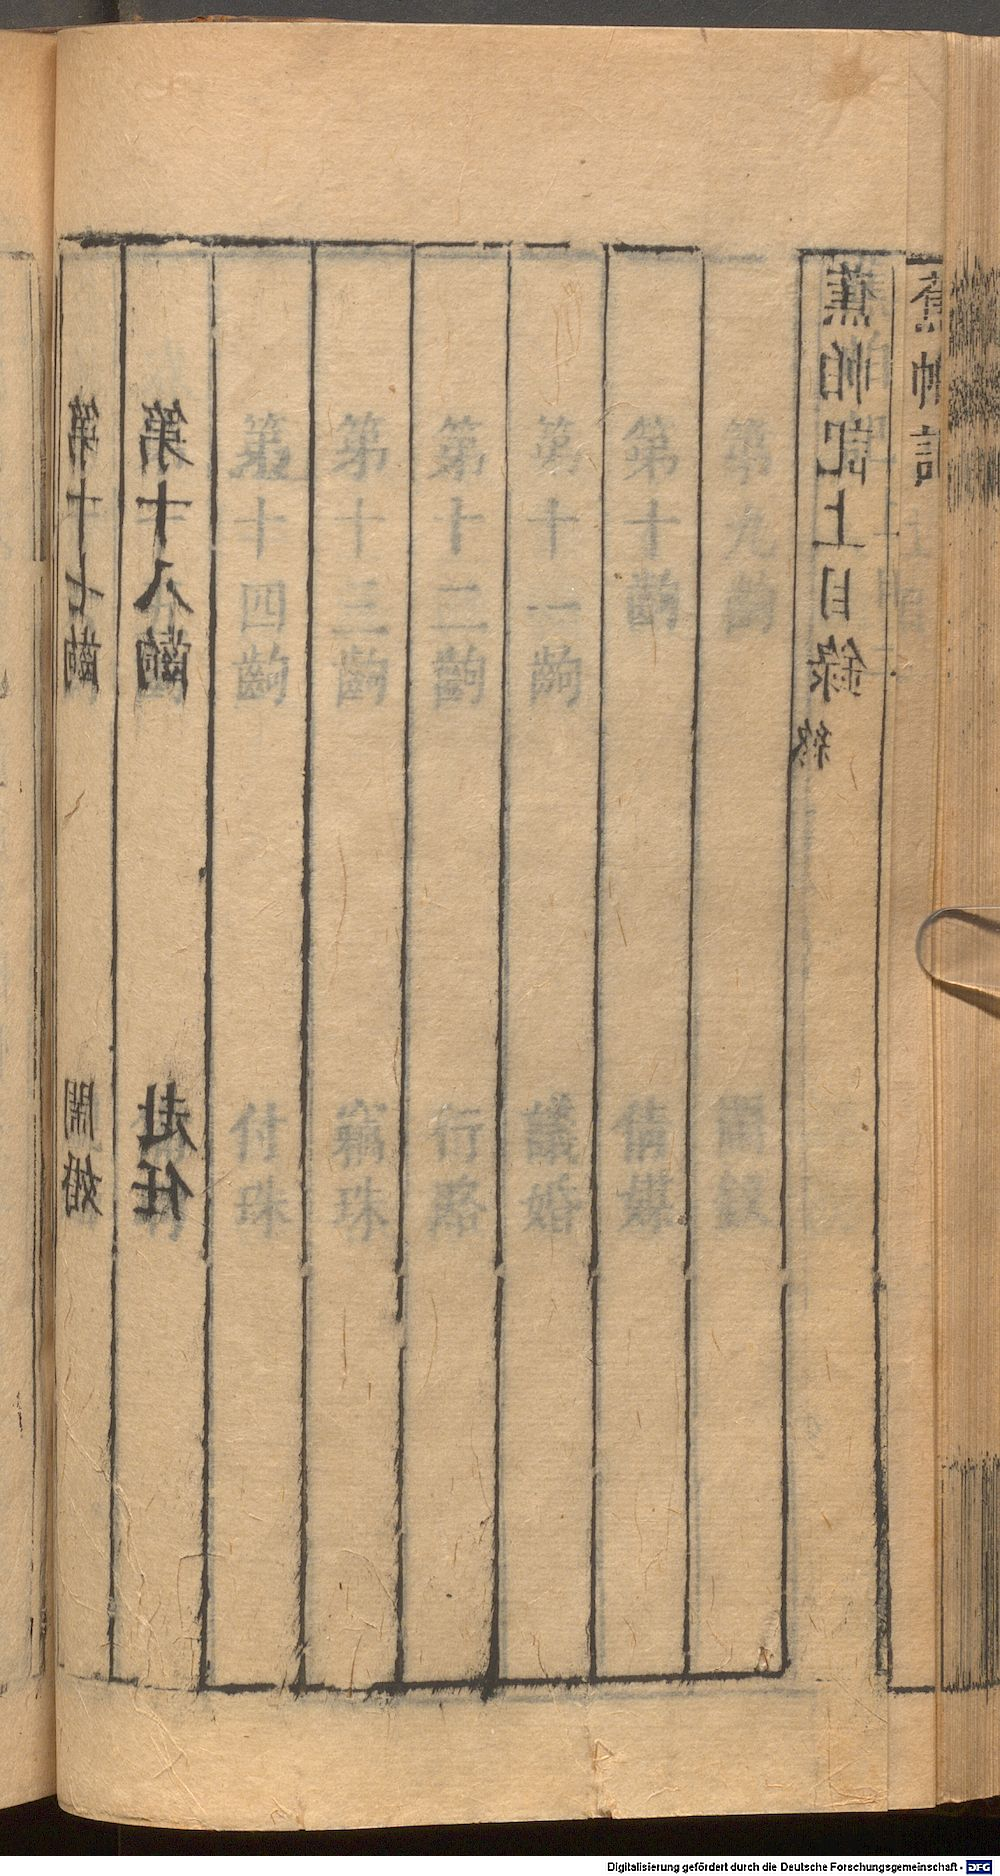 蕉帕記
蕉帕記上目錄終
第九齣 鬧釵
第十齣 倩媒
第十一齣 議婚
第十二齣 行賂
第十三齣 竊珠
第十四齣 付珠
第十八齣 赴任
第十七齣 鬧婚
Digitalisierung gefördert durch die Deutsche Forschungsgemeinschaft - DFG